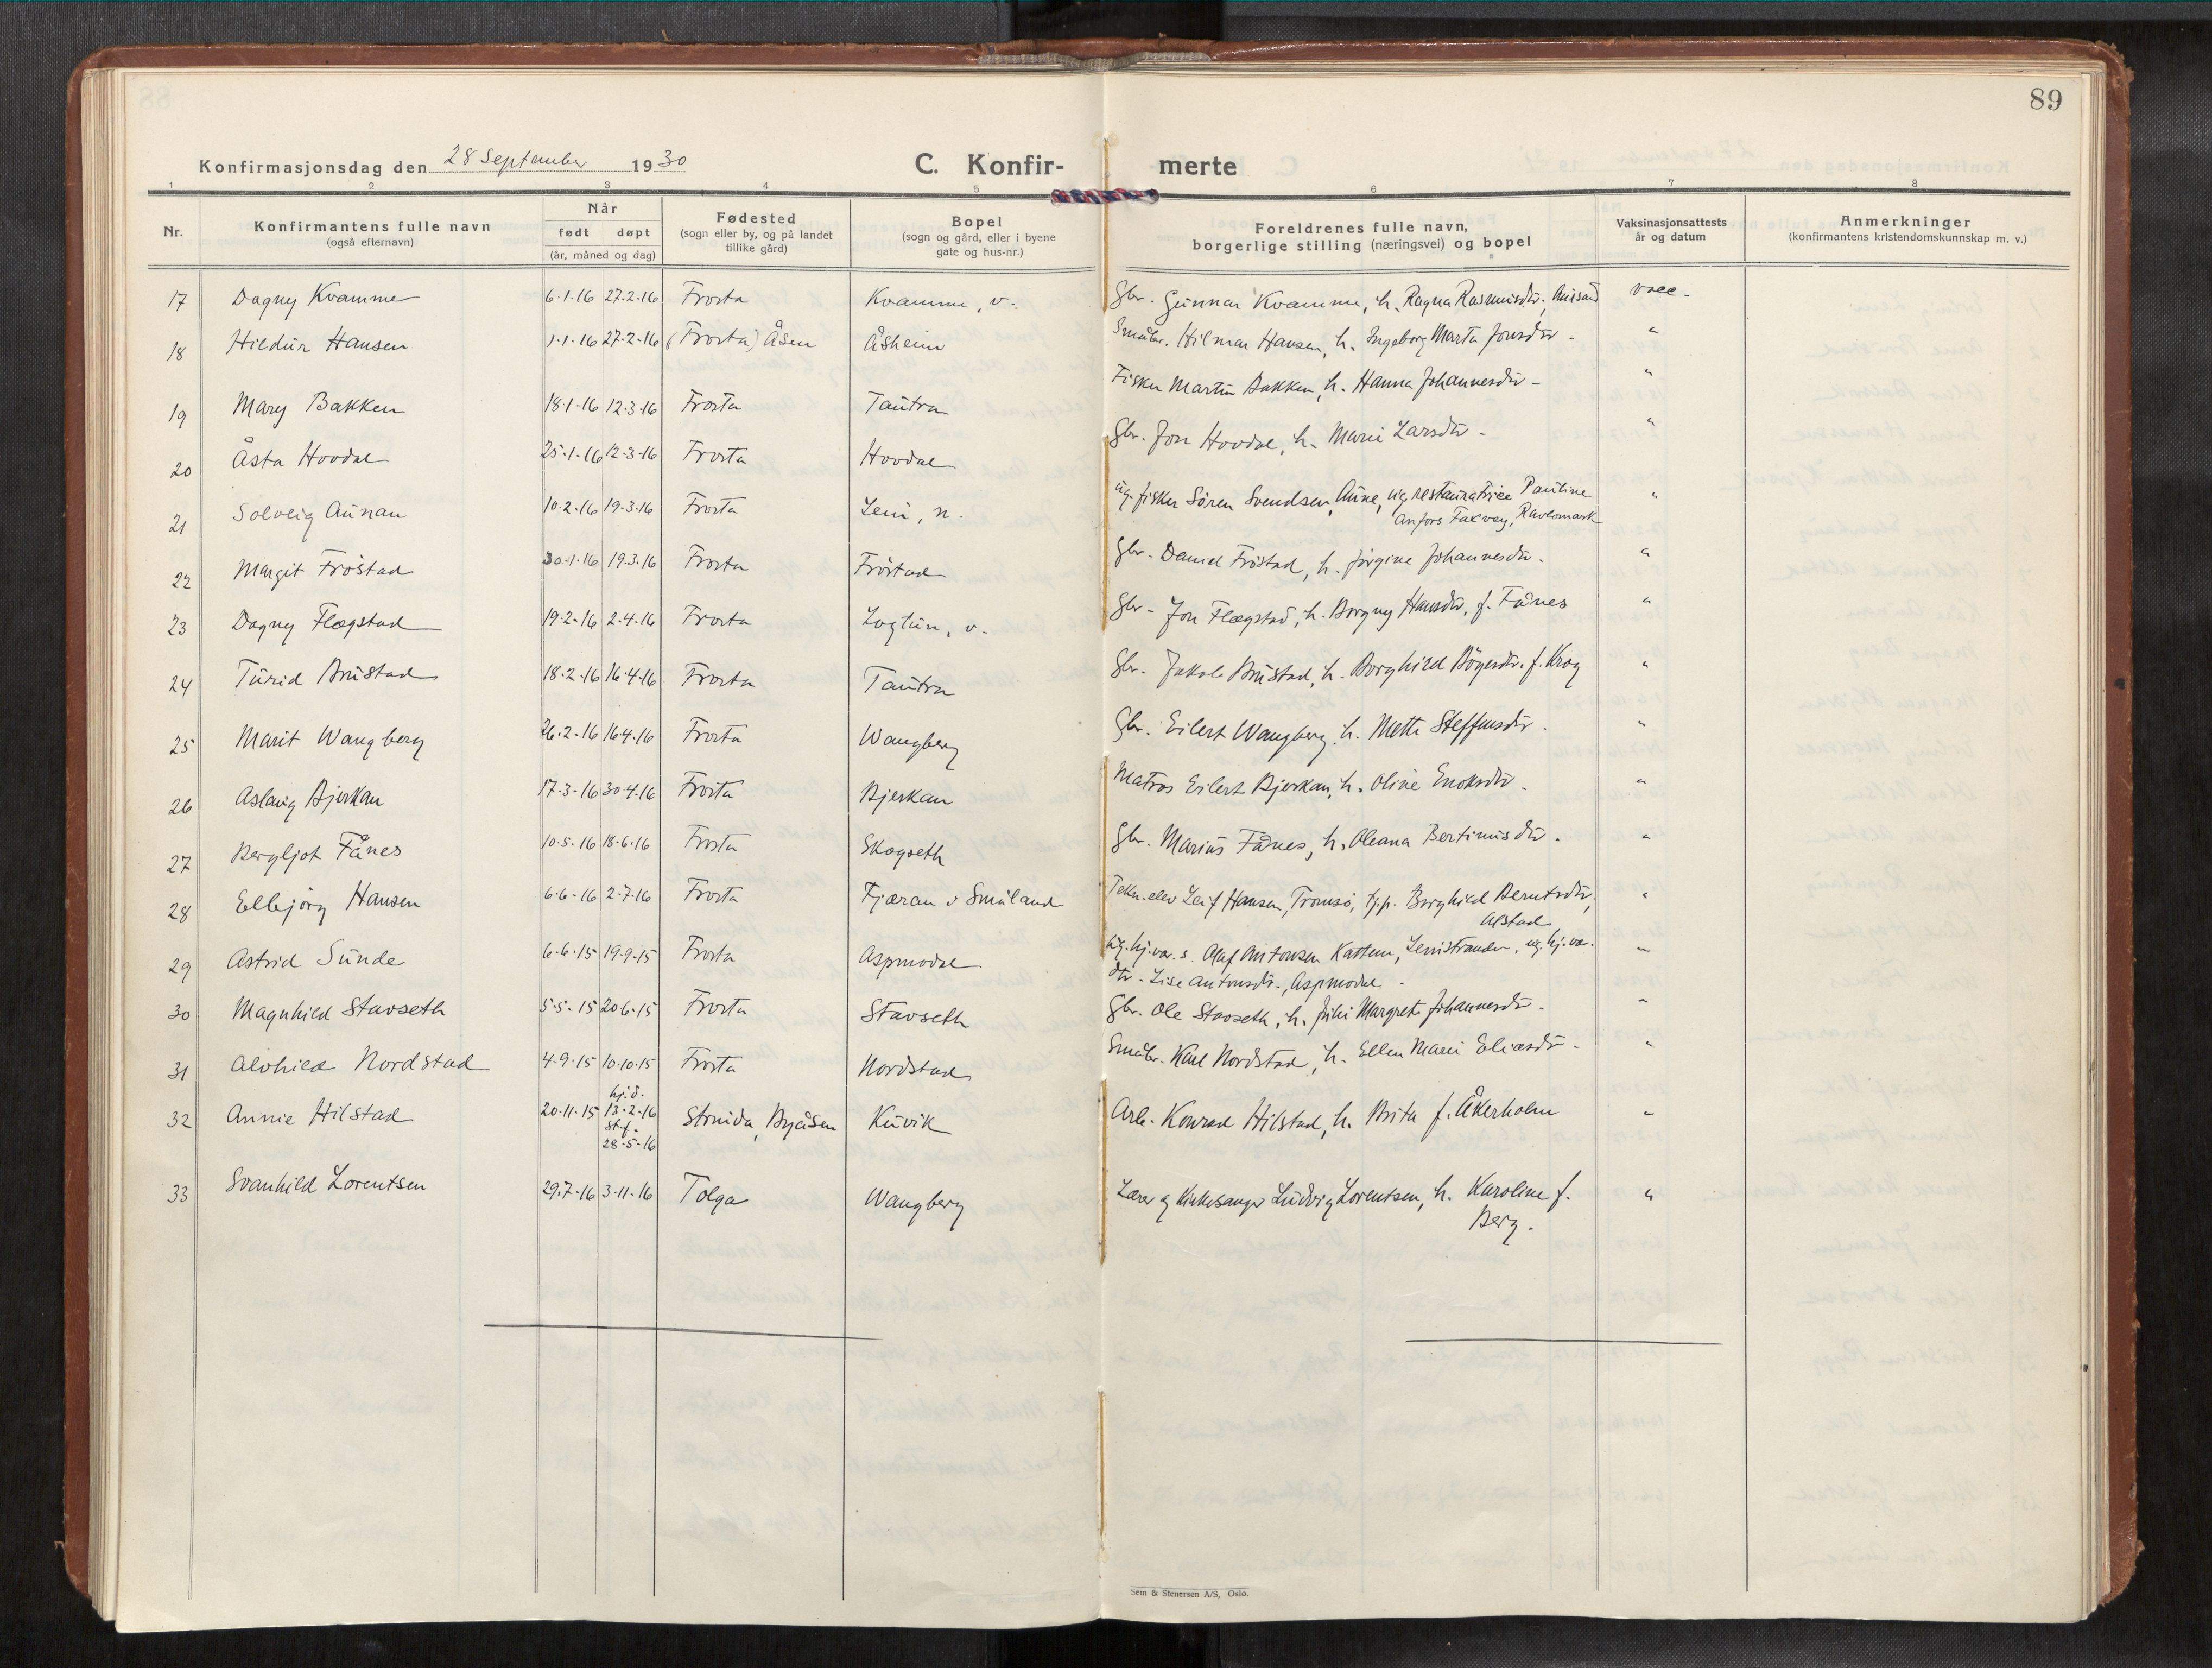 89
Konfirmasjonsdag den 28 September 1930
C. Konfir- merte
1 2 3 4 5 6 7 8
Nr. Konfirmantens fulle navn (også efternavn) Når født døpt (år, måned og dag) Fødested (sogn eller by, og på landet tillike gård) Bopel (sogn og gård, eller i byene gate og hus-nr.) Foreldrenes fulle navn, borgerlige stilling (næringsvei) og bopel Vaksinasjonsattests år og datum Anmerkninger (konfirmantens kristendomskunnskap m. v.)
17 Dagny Kvamme 6-1-16 27.2-16 Frosta Kvamme, v. Gbr. Gunnar Kvamme, h. Ragna Rasmusdtr. vacc.
18 Hildur Hansen 1-1-16 27.2-16 (Frosta) Åsen Åsheim Småbr. Hilmar Hansen, h. Ingeborg Marta Jonsdtr. "
19 Mary Bakken 18-1-16 12-3-16 Frosta Tautra Fisker Martin Bakken, h. Hanna Johannesdtr. "
20 Åsta Hovdal 25-1-16 12-3-16 Frosta Hovdal Gbr. Jon Hovdal, h. Marie Larsdtr. "
21 Solveig Aunan 10-2-16 19-3-16 Frosta Lein, n. ug. fisker Søren Svendsen Aune, ug. restauratrice Pauline
"
22 Margit Frøstad 30-1-16 19.3-16 Frosta Frøstad Gbr. Daniel Frøstad, h. Jørgine Johannesdtr. "
23 Dagny Flægstad 19-2-16 2-4-16 Frosta Logtun, v. Gbr. Jon Flægstad, h. Borgny Hansdtr, f. Fånes "
24 Turid Brustad 18-2-16 16-4-16 Frosta Tautra Gbr. Jakob Brustad, h. Borghild Bøgesdtr. f. Krog "
25 Marit Wangberg 26-2-16 16-4-16 Frosta Wangberg Gbr. Eilert Wangberg, h. Mette Steffensdtr. "
26 Aslaug Bjerkan 17-3-16 30-4-16 Frosta Bjerkan Matros Eilert Bjerkan, h. Oline Enoksdtr. "
27 Bergljot Fånes 10-5-16 18-6-16 Frosta Skogseth Gbr. Marius Fånes, h. Oleana Bertinusdtr. "
28 Ellbjørg Hansen 6-6-16 2-7-16 Frosta Fjæran v Småland Tekn. elev Leif Hansen, Tromsø, tj.p. Borghild Berntsdtr,
Alstad "
29 Astrid Sunde 6-6-15 19-9-15 Frosta Aspmodal ug. hj.vær. s. Olaf Antonsen Kattem, Leinstranden, ug. hj.vær.
dtr. Lise Antonsdtr., Aspmodal "
30 Magnhild Stavseth 5-5-15 20-6-15 Frosta Stavseth Gbr. Ole Stavseth, h. Margrete Johannesdtr. "
31 Alvhild Nordstad 4-9-15 10-10-15 Frosta Nordstad Småbr. Karl Nordstad, h. Ellen Marie Eliasdtr. "
32 Annie Hilstad 20-11-15 hj.d. 13-2-16 st.f. 28-5-16 Strinda, Byåsen Kuvik Arb. Konrad Hilstad, h. Brita f. Åkerholm "
33 Svanhild Lorentsen 29.7-16 3-11-16 Tolga Wangberg Lærer og Kirkesanger Ludvig Lorentsen, h. Karoline f.
Berg. "
Sem & Stenersen A/S, Oslo.